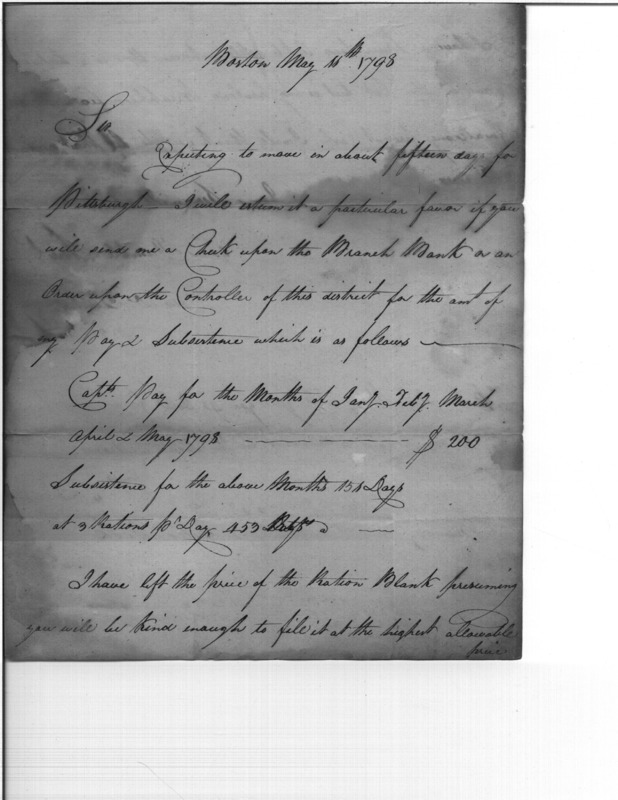 Boston May 11th 1798
Sir
Expecting to move in about fifteen days for
Pittsburgh I will esteem it a particular favor if you
will send me a Check upon the Branch Bank or an
Order upon the Controller of this district for the amt of
my Pay & Subsistence which is as follows —
Capts. Pay for the Months of Jany. Feby. March
April & May 1798 — — — — $ 200
Subsistence for the above Months 151 Days
at 3 Rations Pr Day 453 @ —
I have left the price of the Ration Blank presuming
you will be kind enough to fill it at the highest allowable
price